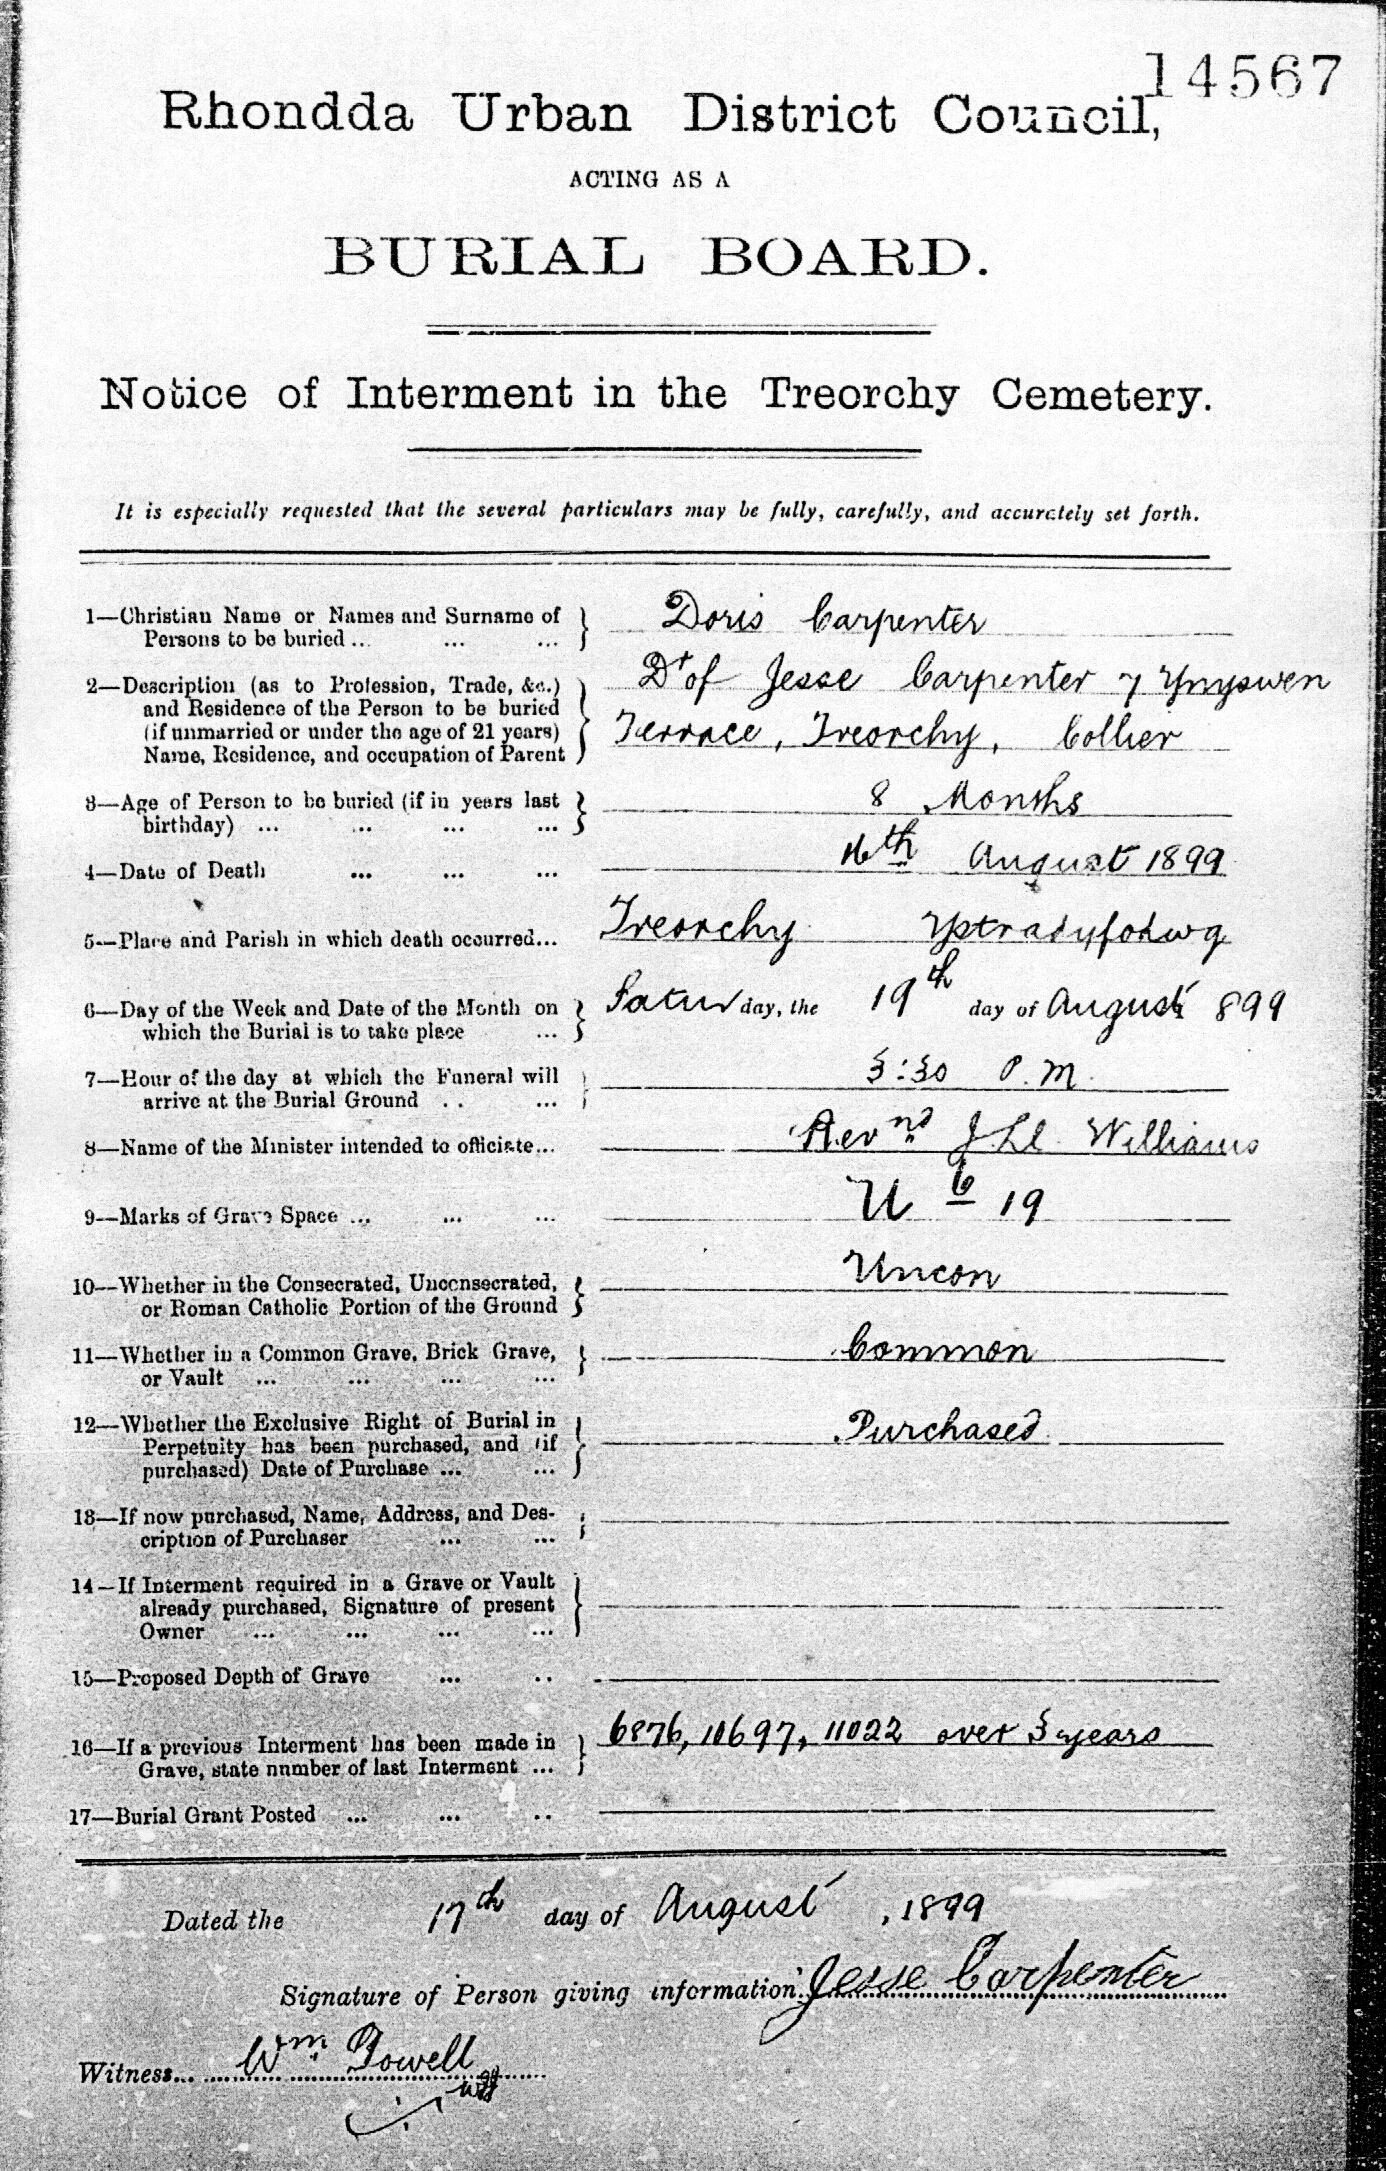 14567
Rhondda Urban District Council,
ACTING AS A
BURIAL BOARD.
Notice of Interment in the Treorchy Cemetery.
It is especially requested that the several particulars may be fully, carefully, and accurately set forth.
1—Christian Name or Names and Surname of
Persons to be buried ... ... ...
Doris Carpenter
2—Description (as to Profession, Trade, &c.)
and Residence of the Person to be buried
(if unmarried or under the age of 21 years)
Name, Residence, and occupation of Parent
Dr of Jesse Carpenter 7 Ynyswen
Terrace, Treorchy, Collier
3—Age of Person to be buried (if in years last
birthday) ... ... ... ...
8 Months
4—Date of Death ... ... ...
16th August 1899
5—Place and Parish in which death occurred...
Treorchy Ystradyfodwg
6—Day of the Week and Date of the Month on
which the Burial is to take place ...
Saturday, the 19th day of August 1899
7—Hour of the day at which the Funeral will
arrive at the Burial Ground .. ...
3:30 P.M.
8—Name of the Minister intended to officiate...
Revnd J Ll Williams
9—Marks of Grave Space ... ... ...
U 6 19
10—Whether in the Consecrated, Unconsecrated,
or Roman Catholic Portion of the Ground
Uncon
11—Whether in a Common Grave, Brick Grave,
or Vault ... ... ... ...
Common
12—Whether the Exclusive Right of Burial in
Perpetuity has been purchased, and (if
purchased) Date of Purchase ... ...
Purchased
13—If now purchased, Name, Address, and Des-
cription of Purchaser ... ...
14—If Interment required in a Grave or Vault
already purchased, Signature of present
Owner ... ... ... ...
15—Proposed Depth of Grave ... ..
16—If a previous Interment has been made in
Grave, state number of last Interment ...
6876, 10697, 11022 over 3 years
17—Burial Grant Posted ... ... ..
Dated the 17th day of August, 1899
Signature of Person giving information. Jesse Carpenter
Witness... Wm. Powell